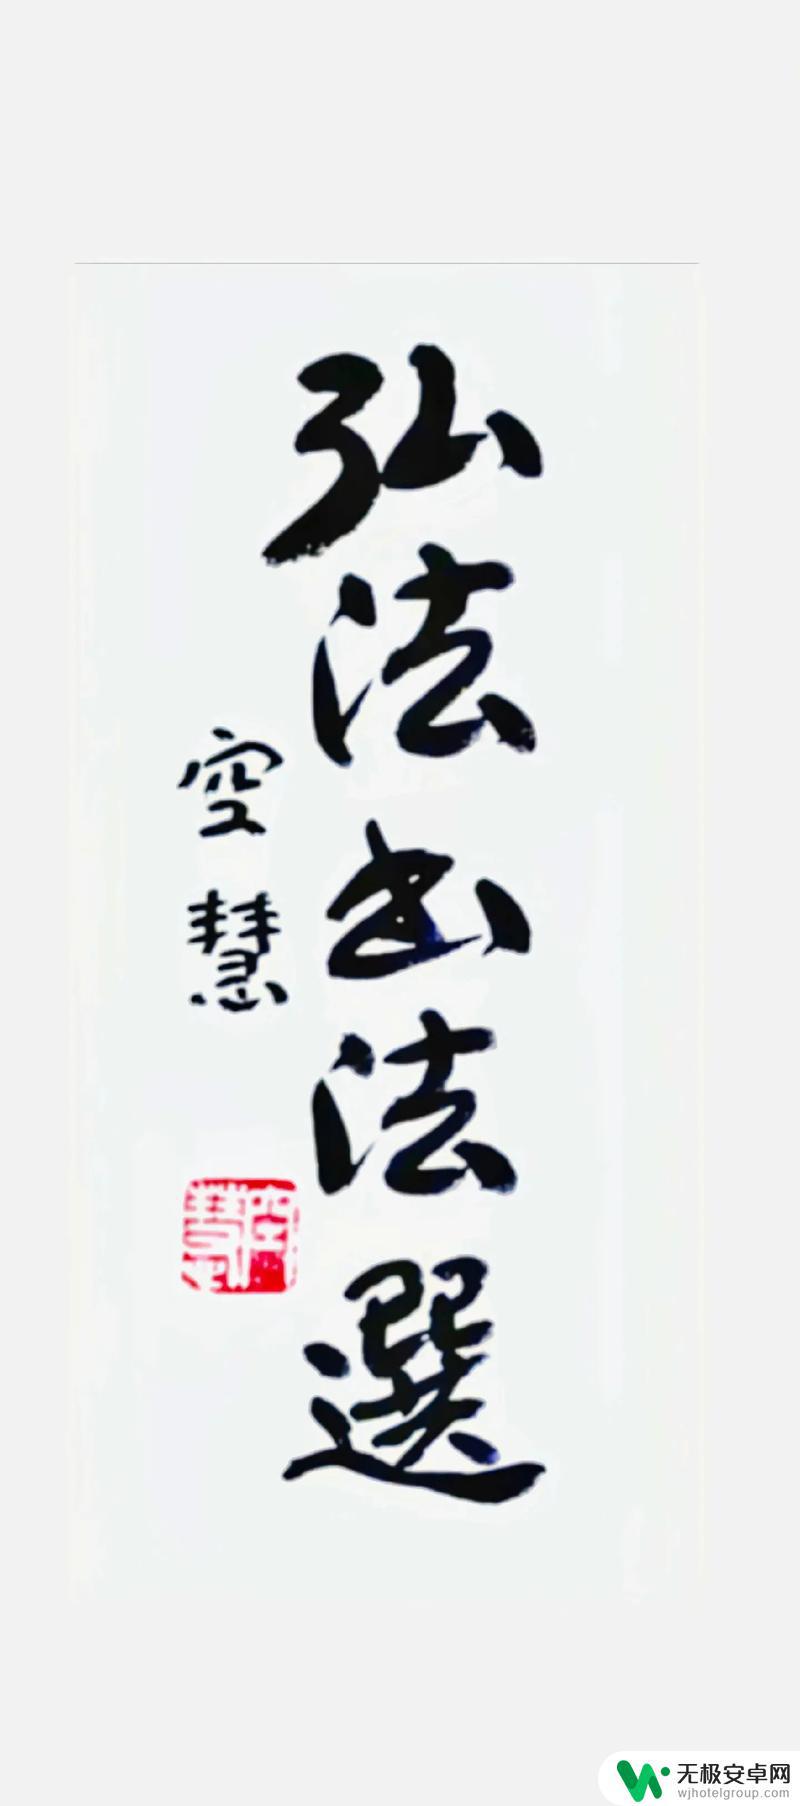 弘法书法選
空慧
空慧
无极安卓网
wjhotelgroup.com